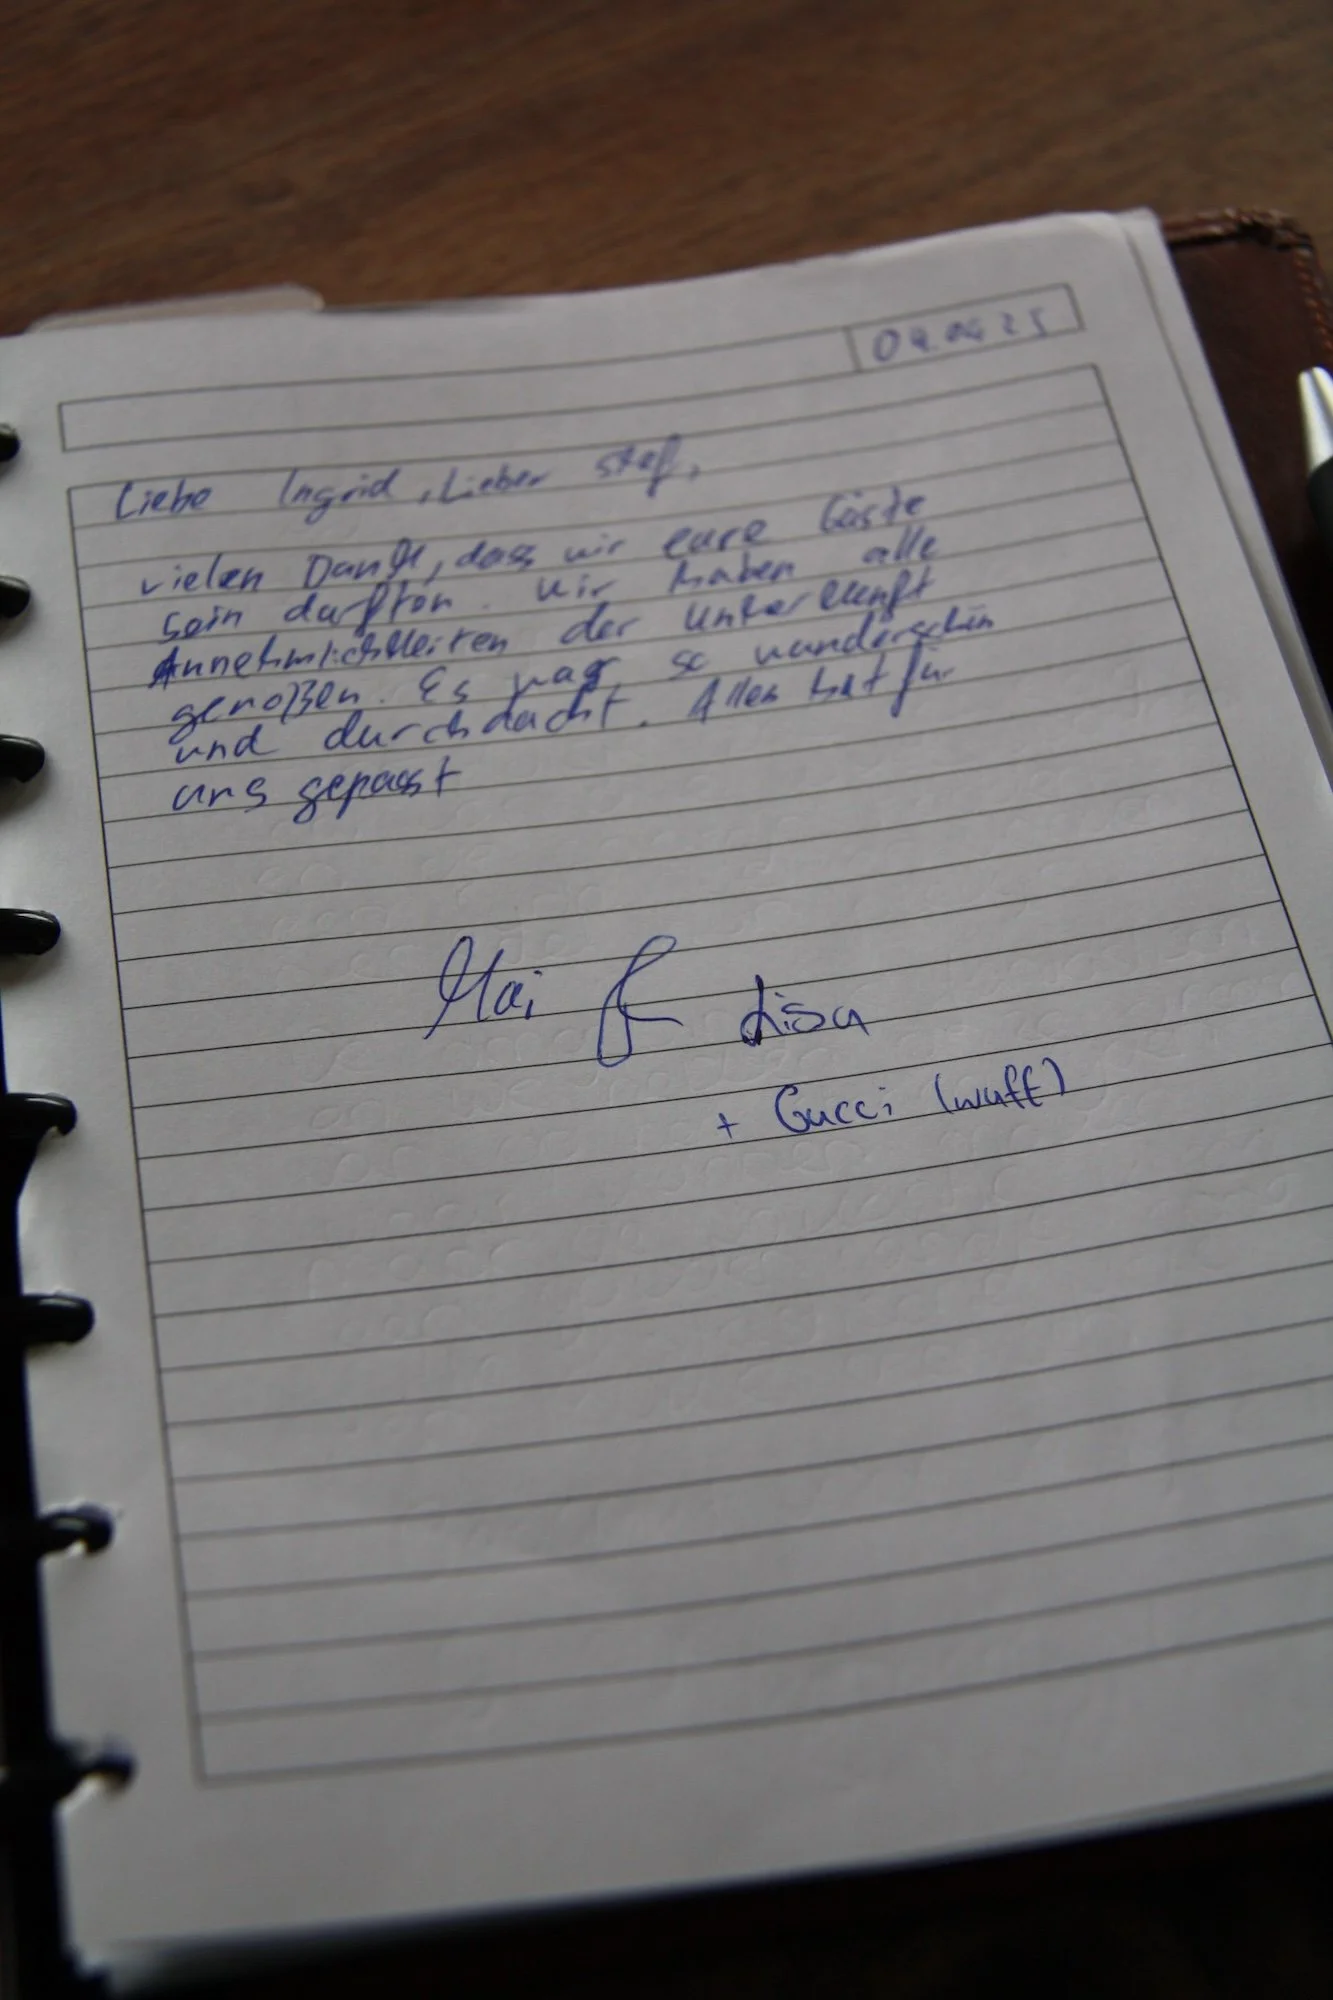 04.04.25
Liebe Ingrid, Lieber Stef,
vielen Dank, dass wir eure Gäste
sein durften. Wir haben alle
Annehmlichkeiten der Unterkunft
genoßen. Es war so wunderschön
und durchdacht. Alles hat für
uns gepasst
Mai & Lisa
+ Gucci (wuff)